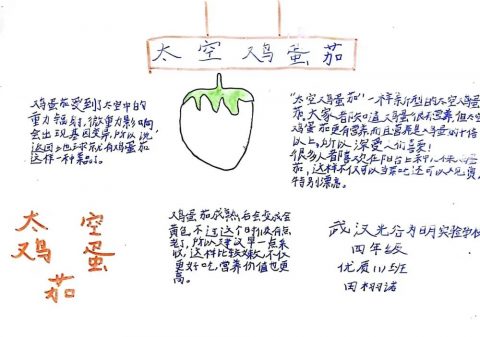 太空鸡蛋茄
鸡蛋茄受到了太空中的
重力辐射,微重力影响
会出现基因变异,所以说
这因此地球就有鸡蛋茄
这样一种菜了。
"太空鸡蛋茄"一种新型的太空鸡蛋
茄,大家都知道鸡蛋很有营养但太空
鸡蛋茄更有营养而且营养是鸡蛋的十倍
以上,所以深受人们喜爱!
很多人都喜欢在阳台上种几株鸡蛋
茄,这样不仅可以当菜吃还可以观赏,
特别漂亮。
太空
鸡蛋
茄
鸡蛋茄成熟后会变成金
黄色,不过这个时候有点
老了,所以建议早一点采
收,这样比较嫩,不仅
更好吃,营养价值也更
高。
武汉光谷为明实验学校
四年级
优质(1)班
田栩诺